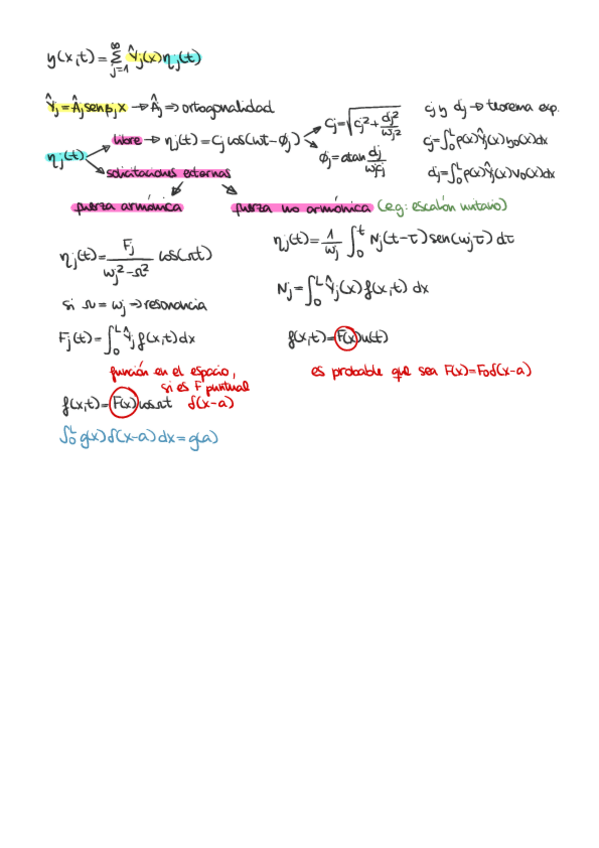 y(x,t) = ∞ Σ j=1 Ŷj(x) ηj(t)
Ŷj = Âj sen βj x → Âj ⇒ ortogonalidad
cj y dj → teorema exp.
libre → ηj(t) = Cj cos(ωt - ϕj)
Cj = √(cj² + dj²/ωj²)
ϕj = atan dj/ωcj
cj = ∫₀ᴸ ρ(x)Ŷj(x)y₀(x)dx
dj = ∫₀ᴸ ρ(x)Ŷj(x)v₀(x)dx
ηj(t)
solicitaciones externas
fuerza armónica
fuerza no armónica (e.g: escalón unitario)
ηj(t) = Fj/(ωj² - Ω²) cos(Ωt)
ηj(t) = 1/ωj ∫₀ᵗ Nj(t-τ) sen(ωjτ) dτ
si Ω = ωj → resonancia
Nj = ∫₀ᴸ Ŷj(x) f(x,t) dx
Fj(t) = ∫₀ᴸ Ŷj f(x,t) dx
f(x,t) = F(x)u(t)
función en el espacio,
si es F puntual
es probable que sea F(x) = F₀δ(x-a)
f(x,t) = F(x) cosΩt δ(x-a)
∫₀ᴸ g(x)δ(x-a)dx = g(a)